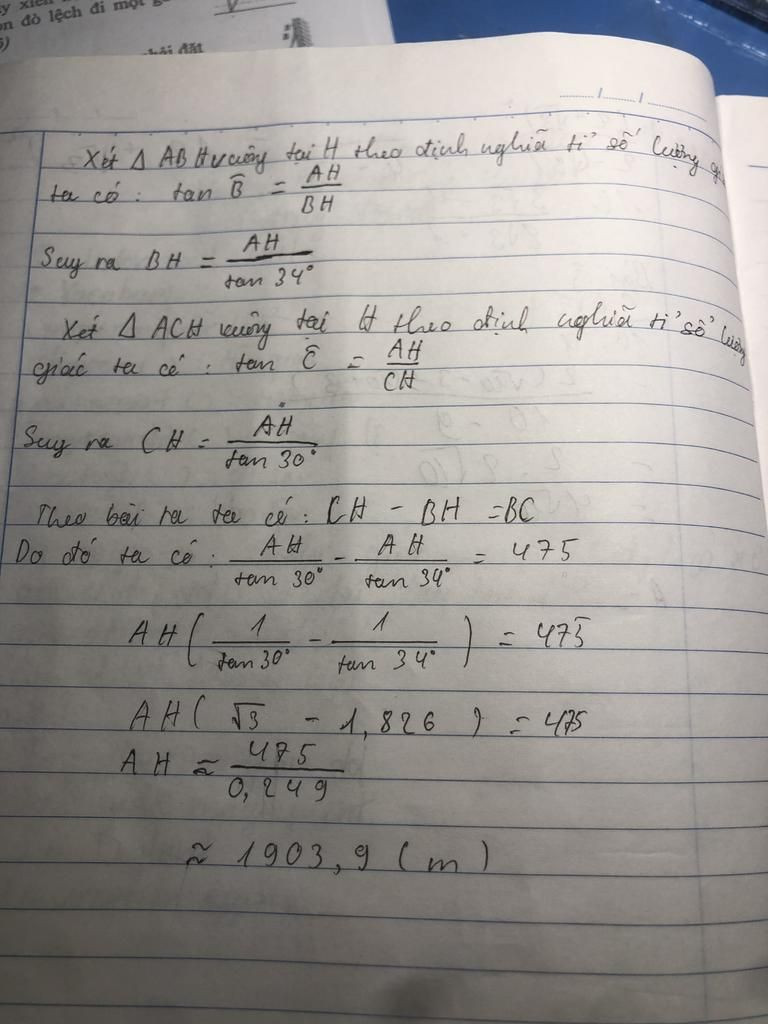 òn đò lệch đi một g
Xét Δ ABH vuông tại H theo định nghĩa tỉ số lượng gi
ta có : tan B̂ = AH / BH
Suy ra BH = AH / tan 34°
Xét Δ ACH vuông tại H theo định nghĩa tỉ số lượng
giác ta có : tan Ĉ = AH / CH
Suy ra CH = AH / tan 30°
Theo bài ra ta có : CH - BH = BC
Do đó ta có : AH / tan 30° - AH / tan 34° = 475
AH ( 1 / tan 30° - 1 / tan 34° ) = 475
AH ( √3 - 1,826 ) = 475
AH ≈ 475 / 0,249
≈ 1903,9 (m)